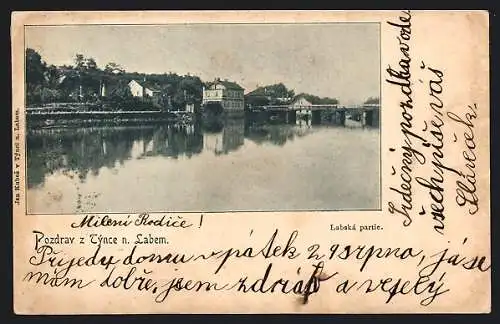 Jan Kubeš v Týnci n. Labem.
Milení Rodiče!
Labská partie.
Pozdrav z Týnce n. Labem.
Přijedu domu v pátek 29 srpna, já se
mám dobře, jsem zdráv a veselý
Srdečný pozdrav ode
všech píše váš